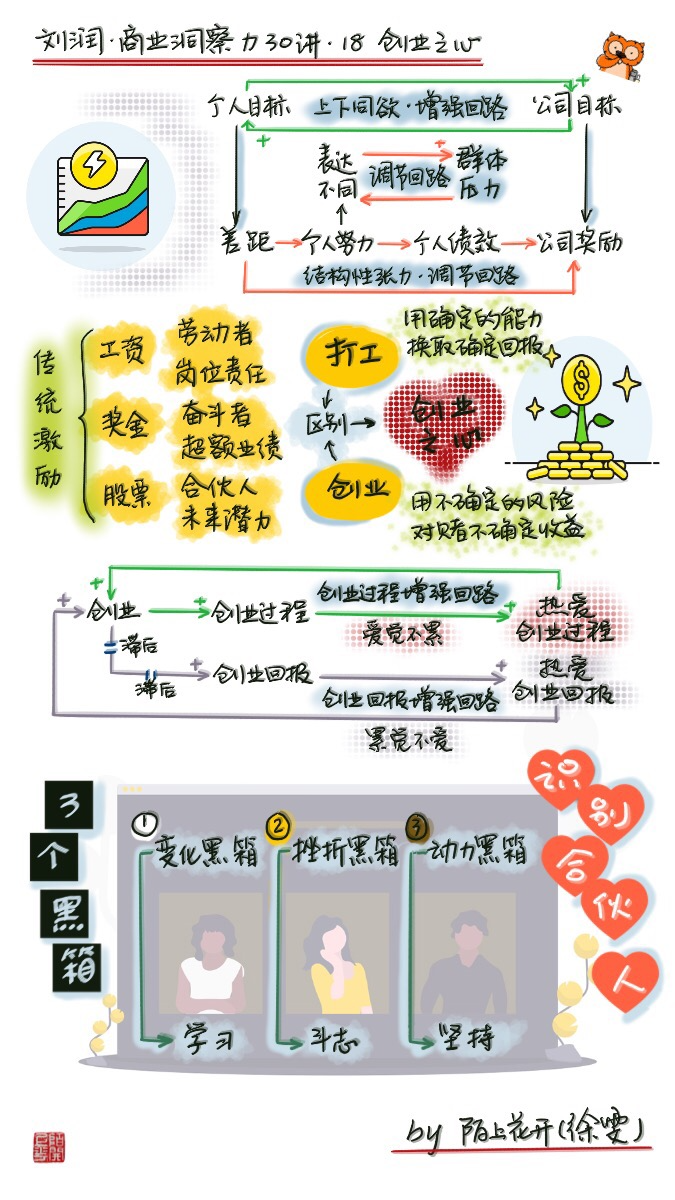 刘润·商业洞察力30讲·18 创业之心
个人目标 上下同欲·增强回路 公司目标
+
+
表达 + 群体
不同 调节回路 压力
差距 个人努力 个人绩效 公司奖励
结构性张力·调节回路
传统激励
工资 劳动者
岗位责任
奖金 奋斗者
超额业绩
股票 合伙人
未来潜力
打工
区别
创业
创业
之心
用确定的能力
换取确定回报
用不确定的风险
对赌不确定收益
$
+ + 创业 + 创业过程 创业过程增强回路 + 热爱
创业过程
爱觉不累
滞后
滞后 + 创业回报 + 热爱
创业回报
创业回报增强回路
累觉不爱
3个黑箱
1 变化黑箱
2 挫折黑箱
3 动力黑箱
学习 斗志 坚持
识别合伙人
by 陌上花开(徐雯)